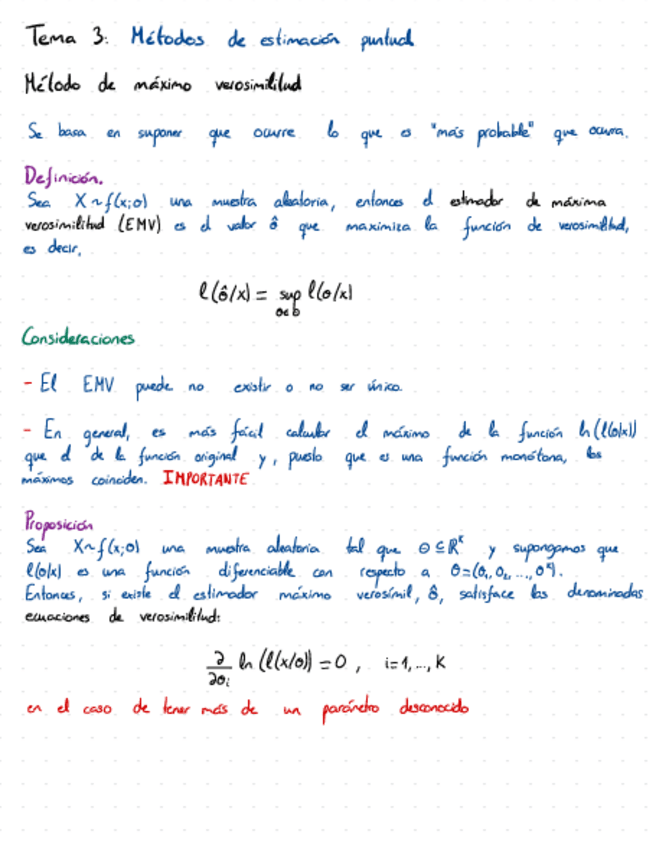 Tema 3: Métodos de estimación puntual
Método de máximo verosimilitud
Se basa en suponer que ocurre lo que es "más probable" que ocurra.
Definición.
Sea X~f(x;θ) una muestra aleatoria, entonces el estimador de máxima
verosimilitud (EMV) es el valor θ̂ que maximiza la función de verosimilitud,
es decir,
l(θ̂/x) = sup l(θ/x)
θ∈Θ
Consideraciones
- El EMV puede no existir o no ser único.
- En general, es más fácil calcular el máximo de la función ln(l(θ|x))
que el de la función original y, puesto que es una función monótona, los
máximos coinciden. IMPORTANTE
Proposición
Sea X~f(x;θ) una muestra aleatoria tal que Θ⊆ℝᴷ y supongamos que
l(θ|x) es una función diferenciable con respecto a θ=(θ₁,θ₂,...,θᴷ).
Entonces, si existe el estimador máximo verosímil, θ̂, satisface las denominadas
ecuaciones de verosimilitud:
∂/∂θᵢ ln(l(x/θ)) = 0 , i=1,...,K
en el caso de tener más de un parámetro desconocido